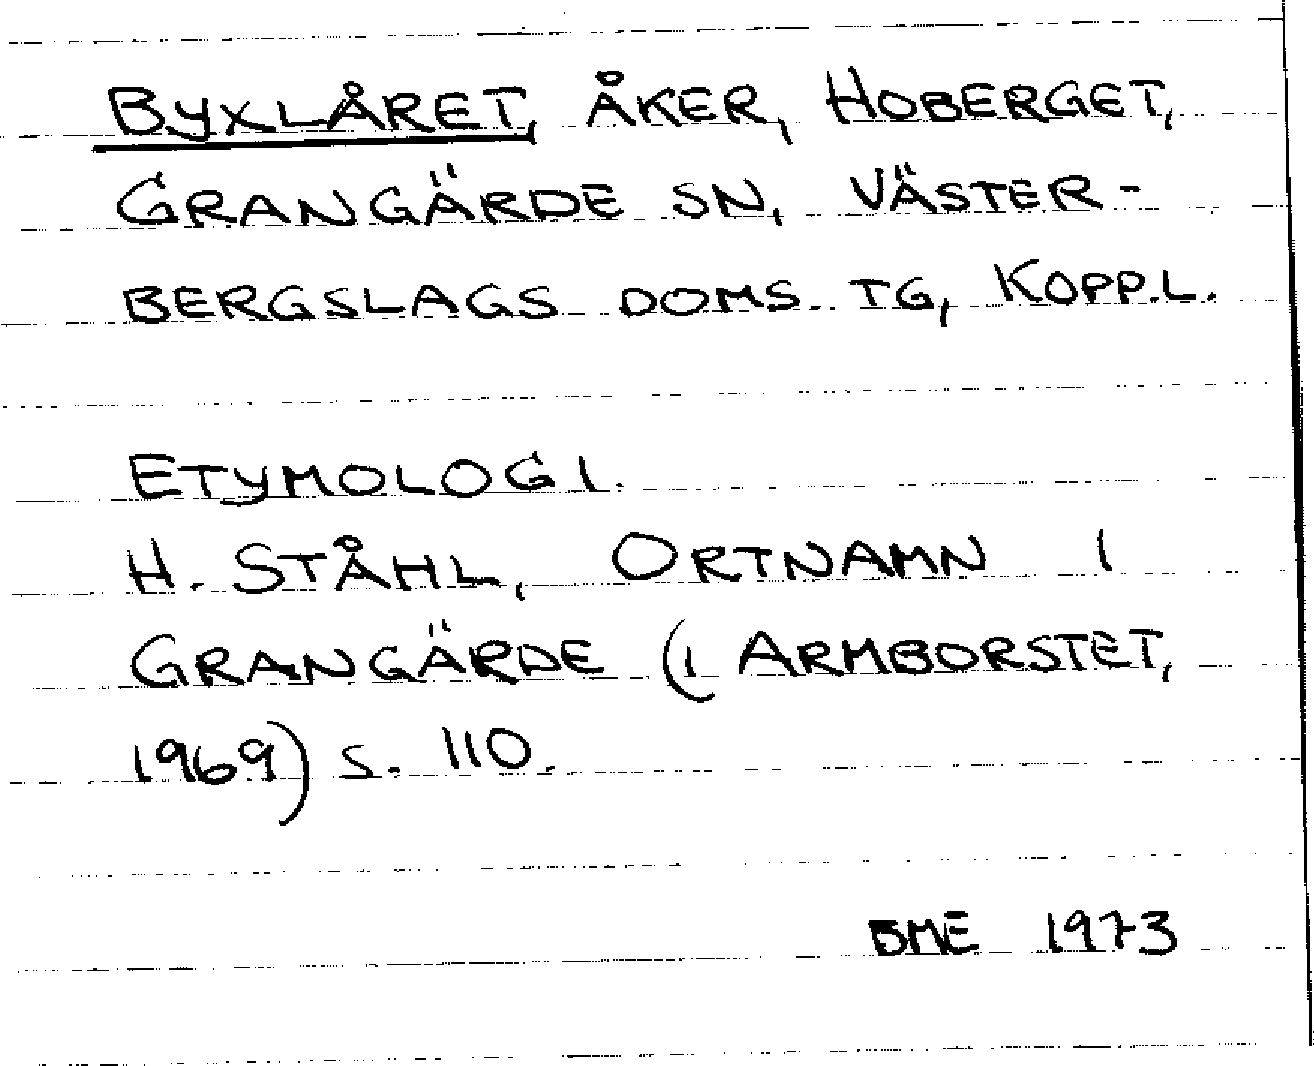 BYXLÅRET, ÅKER, HOBERGET,
GRANGÄRDE SN, VÄSTER-
BERGSLAGS DOMS. TG, KOPP.L.
ETYMOLOGI.
H. STÅHL, ORTNAMN I
GRANGÄRDE (I ARMBORSTET,
1969) S. 110.
BME 1973